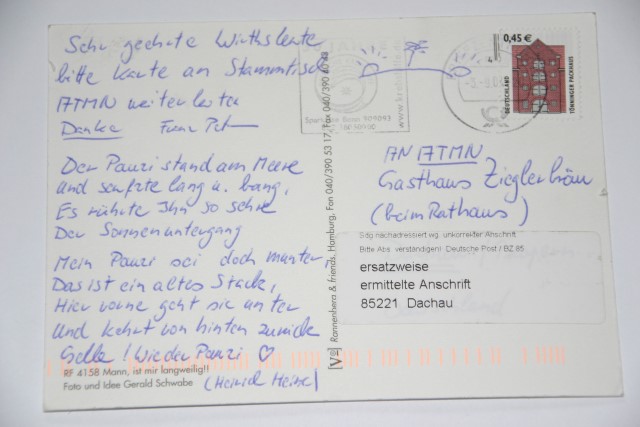 Sehr geehrte Wirthsleute
bitte Karte an Stammtisch
ATMN weiterleiten
Danke Franz Pet
Der Panzi stand am Meere
und seufzte lang u. bang,
Es rührte Ihn so sehre
Der Sonnenuntergang
Mein Panzi sei doch munter,
Das ist ein altes Stück,
Hier vorne geht sie unter
Und kehrt von hinten zurück
Gella! Wieder Panzi ♡
(Heinrich Heine)
RF 4158 Mann, ist mir langweilig!!
Foto und Idee Gerald Schwabe
Rannenberg & friends, Hamburg, Fon 040/390 53 17, Fax 040/390 40 43
0,45 €
DEUTSCHLAND
TÖNNINGER PACKHAUS
AN ATMN
Gasthaus Zieglerbräu
(beim Rathaus)
Sdg nachadressiert wg. unkorrekter Anschrift
Bitte Abs. verständigen! Deutsche Post / BZ 85
ersatzweise
ermittelte Anschrift
85221 Dachau